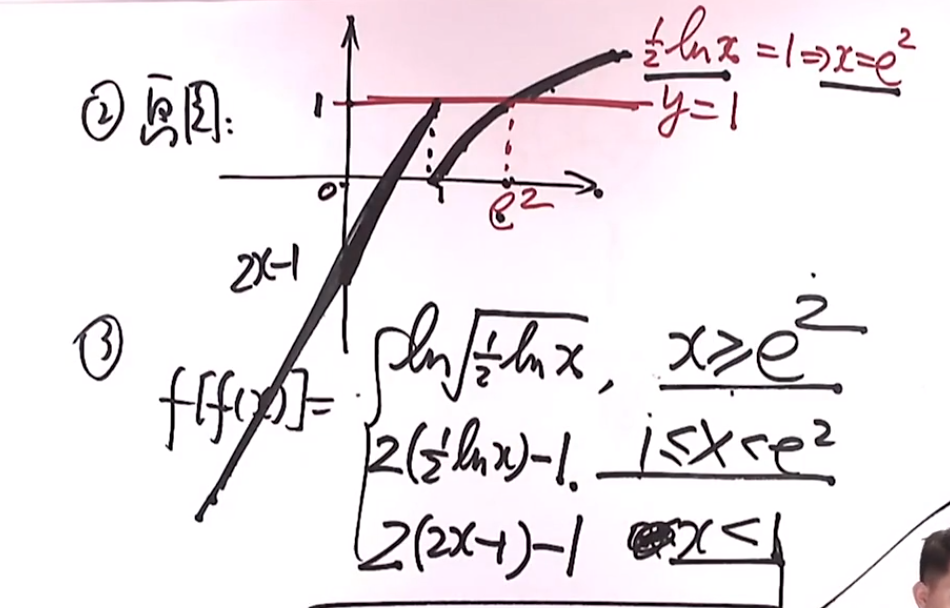 ½lnx = 1 ⇒ x=e²
② 画图:
1
y=1
0
1
e²
2x-1
③
f[f(x)]=
ln√(½lnx), x⩾e²
2(½lnx)-1. 1≤x<e²
2(2x-1)-1 x<1